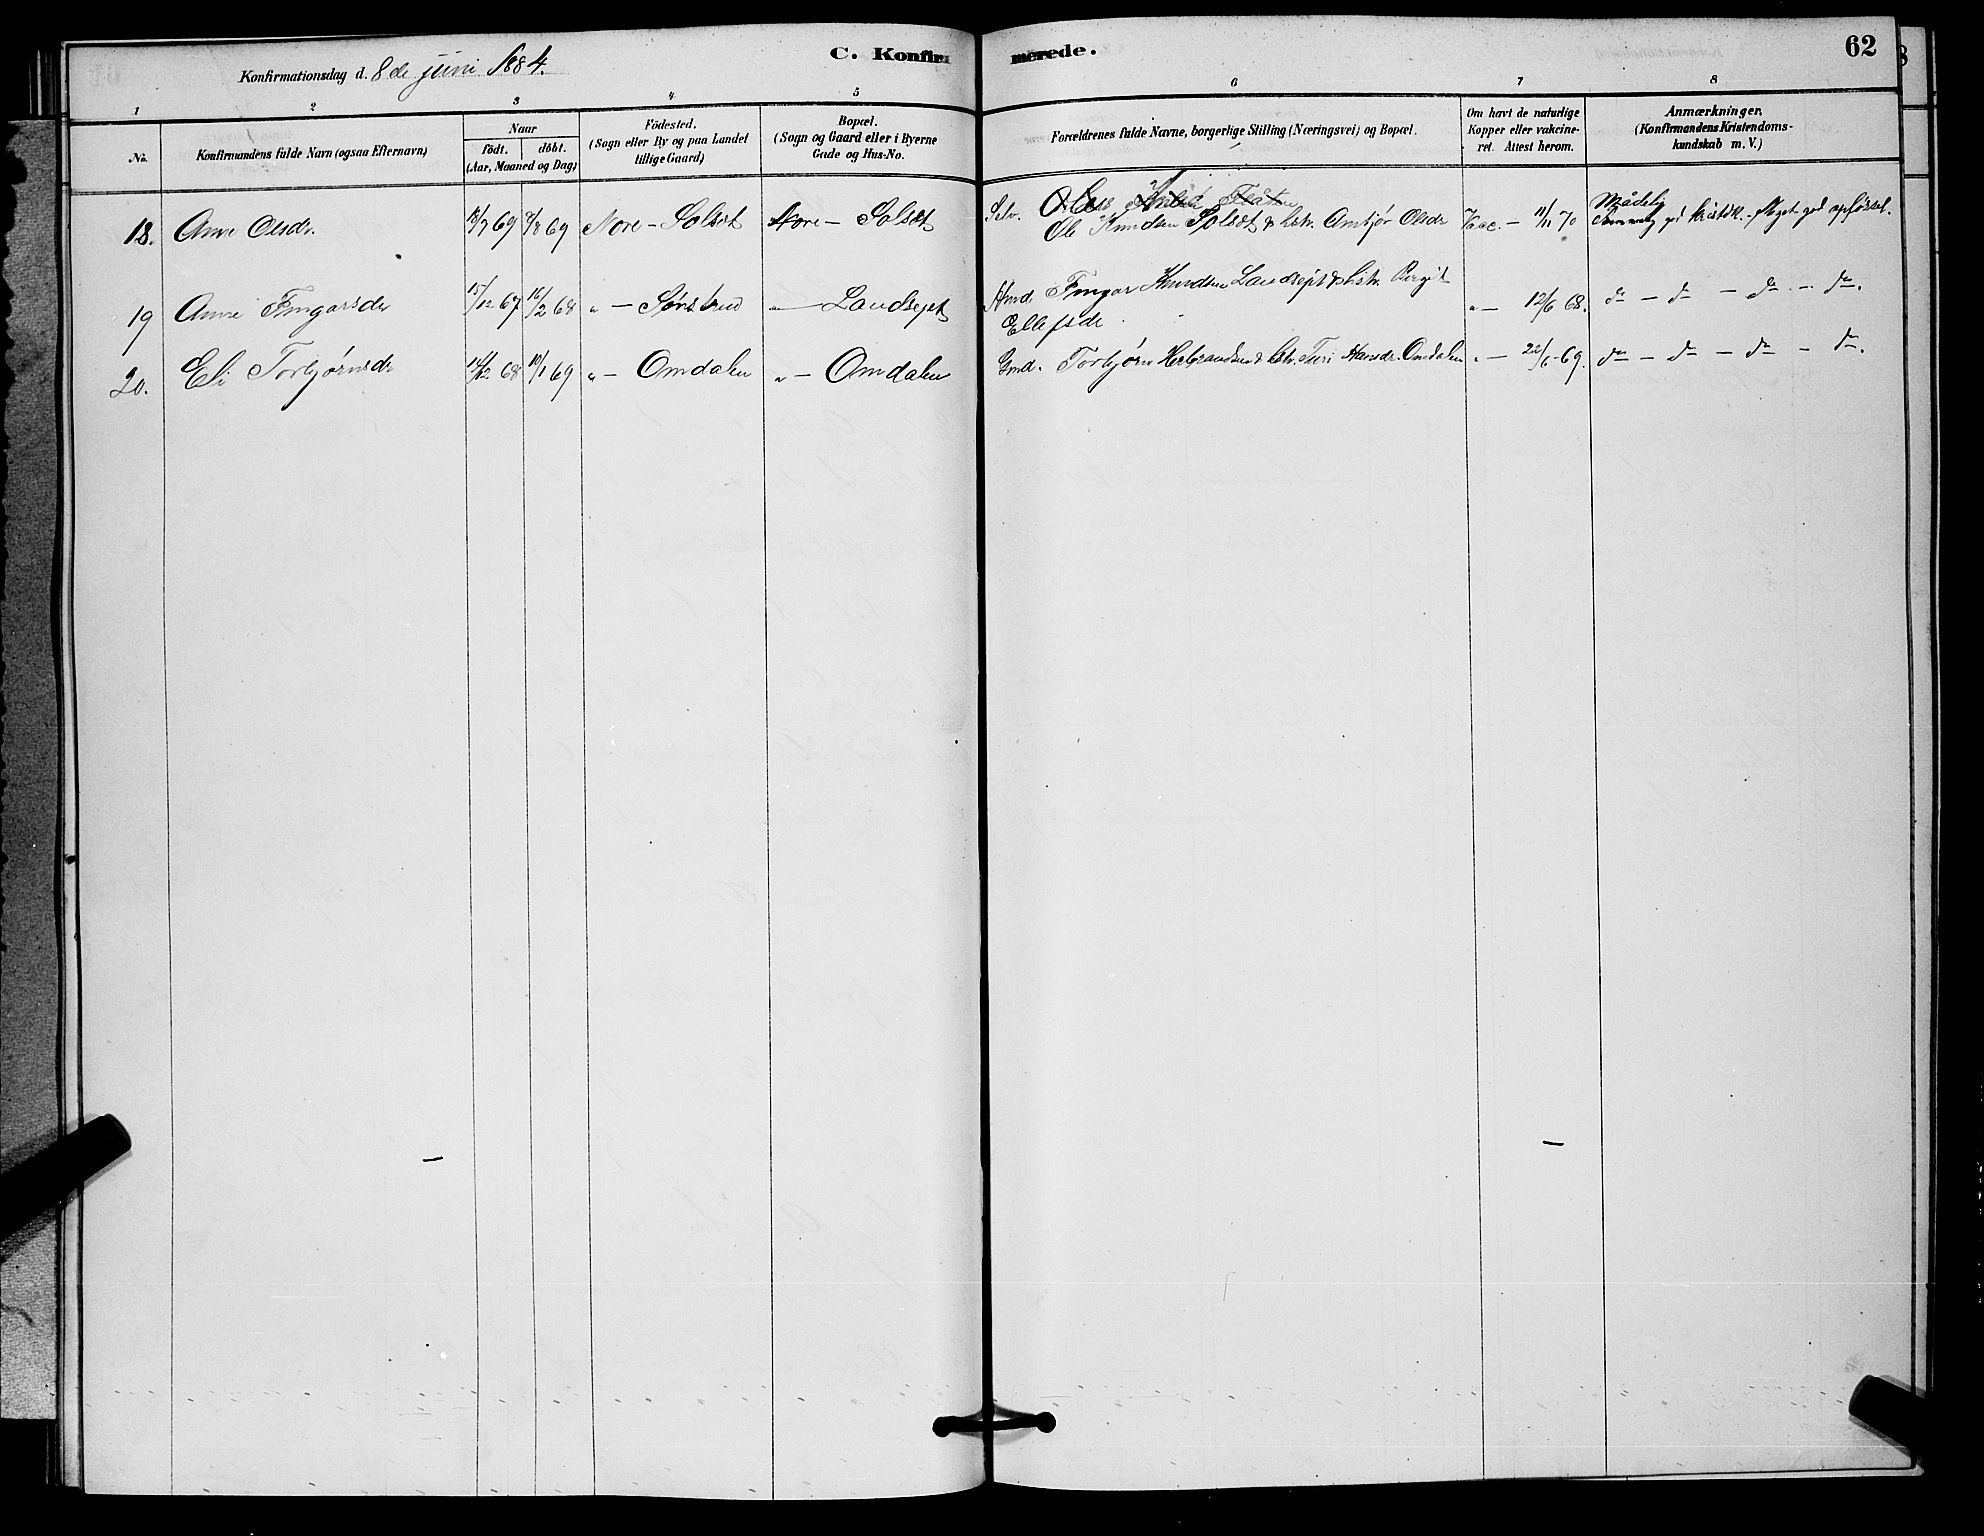 C. Konfirmerede.
62
Konfirmationsdag d. 8de juni 1884.
1 2 3 4 5 6 7 8
No.
Konfirmandens fulde Navn (ogsaa Efternavn)
Naar
födt. döbt.
(Aar, Maaned og Dag)
Födested.
(Sogn eller By og paa Landet
tillige Gaard)
Bopæl.
(Sogn og Gaard eller i Byerne
Gade og Hus-No.
Forældrenes fulde Navne, borgerlige Stilling (Næringsvei) og Bopæl.
Om havt de naturlige
Kopper eller vakcine-
ret. Attest herom.
Anmærkninger.
(Konfirmandens Kristendoms-
kundskab m. V.)
18. Anne Olsdr. 18/7 69 8/8 69 Nore - Solset Nore - Solset Selv. Ole Knudsen Solset & hstr. Amtjør Olsdr Vacc. - 11/11 70 Mådelig
god Kristdk. - Meget god opførsel.
19 Anne Fingarsdr 15/12 67 16/2 68 " - Sønstrud - Landsget Hmd. Fingar Knudsen Landsget & hstr. Birgit
Ellefsdr " - 12/6 68. do - do - do - do.
20. Eli Torbjørnsdr 14/12 68 10/1 69 " - Omdalen " - Omdalen Gmd. Torbjørn Herbrandsen & hstr. Turi Hansdr. Omdalen " - 22/6 69. do - do - do - do.